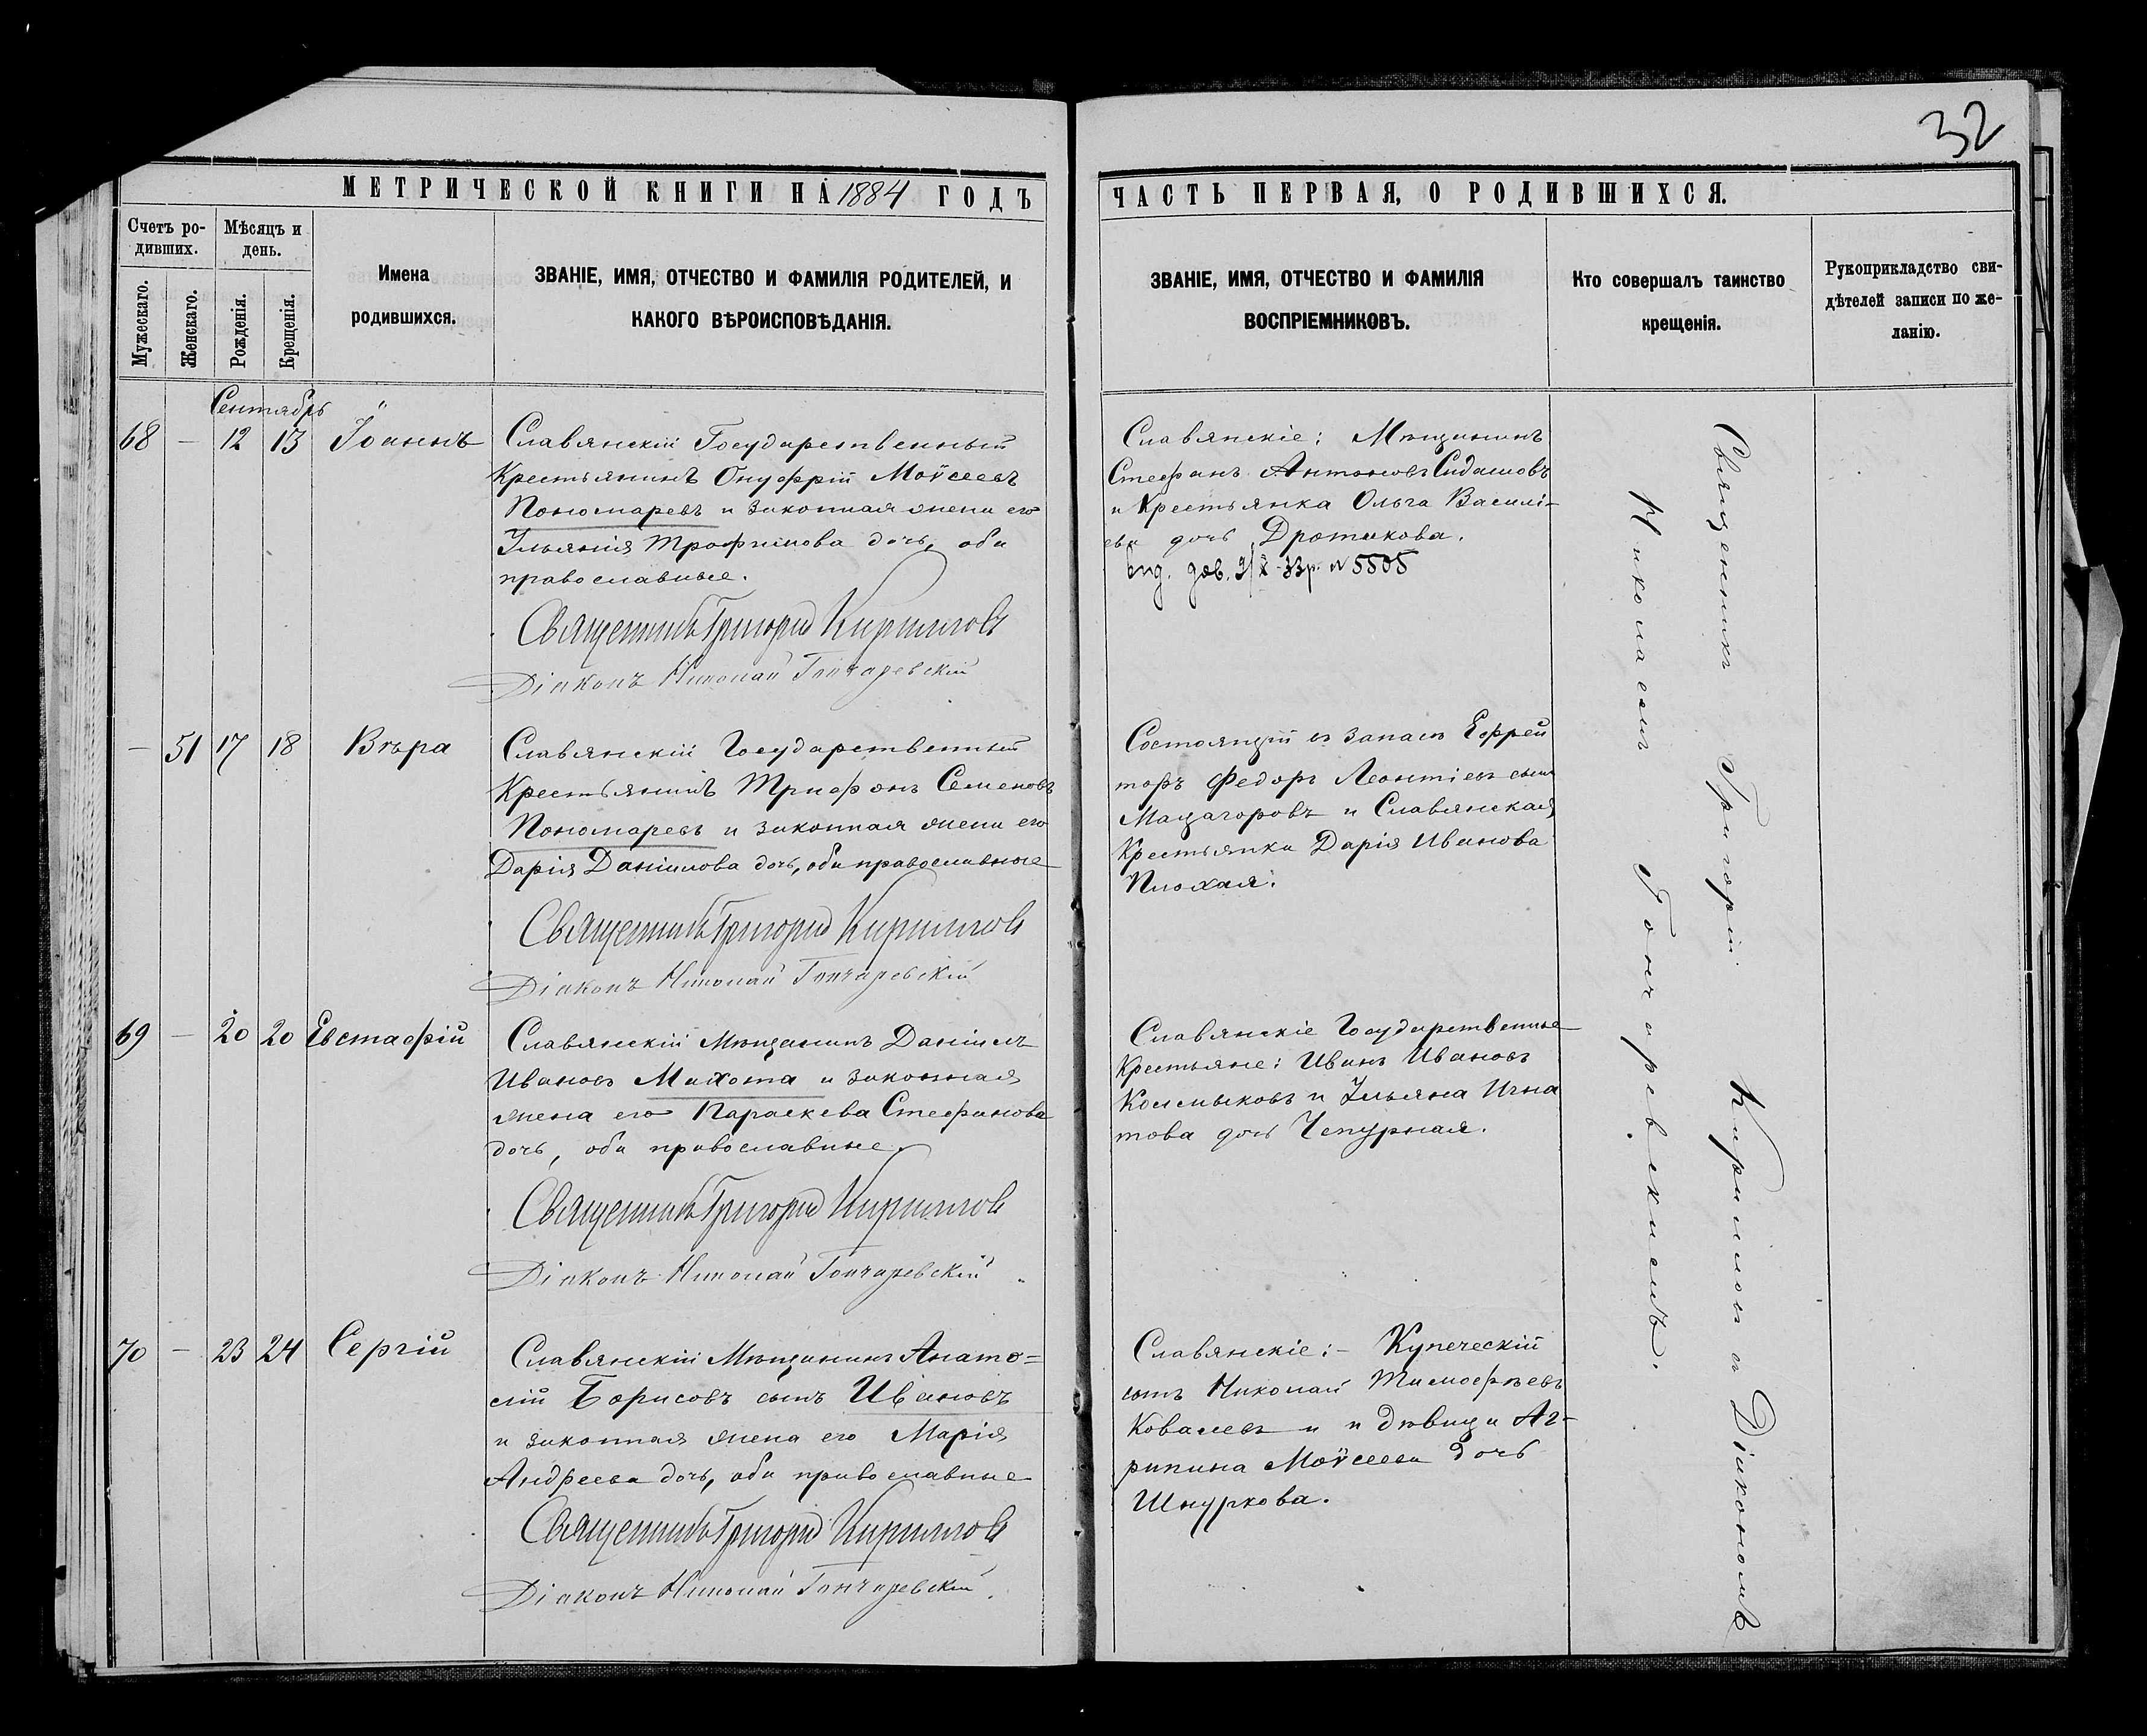 32
МЕТРИЧЕСКОЙ КНИГИ НА 1884 ГОДЪ
Счетъ ро-
дившихъ.
Мѣсяцъ и
день.
Мужескаго.
Женскаго.
Рожденія.
Крещенія.
Имена
родившихся.
ЗВАНІЕ, ИМЯ, ОТЧЕСТВО И ФАМИЛІЯ РОДИТЕЛЕЙ, И
КАКОГО ВѢРОИСПОВѢДАНІЯ.
Сентябрь
68 — 12 13 Іоаннъ
Славянскій Государственный
Крестьянинъ Онуфрій Моѵсеевъ
Пономаревъ и законная жена его
Ульянія Трофимова дочь, оба
православные.
Священникъ Григорій Кириловъ
Діаконъ Николай Гончаревскій
— 51 17 18 Вѣра
Славянскій Государственный
Крестьянинъ Трифонъ Семеновъ
Пономаревъ и законная жена его
Дарія Даніилова дочь, оба православные
Священникъ Григорій Кириловъ
Діаконъ Николай Гончаревскій
69 — 20 20 Евстафій
Славянскій Мѣщанинъ Даніилъ
Ивановъ Махота и законная
жена его Параскева Стефанова
дочь, оба православные.
Священникъ Григорій Кириловъ
Діаконъ Николай Гончаревскій
70 — 23 24 Сергій
Славянскій Мѣщанинъ Анато=
лій Борисовъ сынъ Ивановъ
и законная жена его Марія
Андреева дочь, оба православные
Священникъ Григорій Кириловъ
Діаконъ Николай Гончаревскій.
ЧАСТЬ ПЕРВАЯ, О РОДИВШИХСЯ.
ЗВАНІЕ, ИМЯ, ОТЧЕСТВО И ФАМИЛІЯ
ВОСПРІЕМНИКОВЪ.
Кто совершалъ таинство
крещенія.
Рукоприкладство сви-
дѣтелей записи по же-
ланію.
Славянскіе: Мѣщанинъ
Стефанъ Антоновъ Сидашовъ
и Крестьянка Ольга Василі-
ева дочь Дротикова.
вид. дов. 9/X-33р. N 5505
Состоящій въ запасѣ Ефрей
торъ Федоръ Леонтіевъ сынъ
Мацагоровъ и Славянская
Крестьянка Дарія Иванова
Плохая.
Славянскіе Государственные
Крестьяне: Иванъ Ивановъ
Колмыковъ и Ульяна Игна
това дочь Чепурная.
Славянскіе:- Купеческій
сынъ Николай Тимофѣевъ
Ковалевъ и и дѣвица Аг-
рипина Моѵсеева дочь
Шнуркова.
Священникъ Григорій Кириловъ съ Діакономъ
Николаемъ Гончаревскимъ.